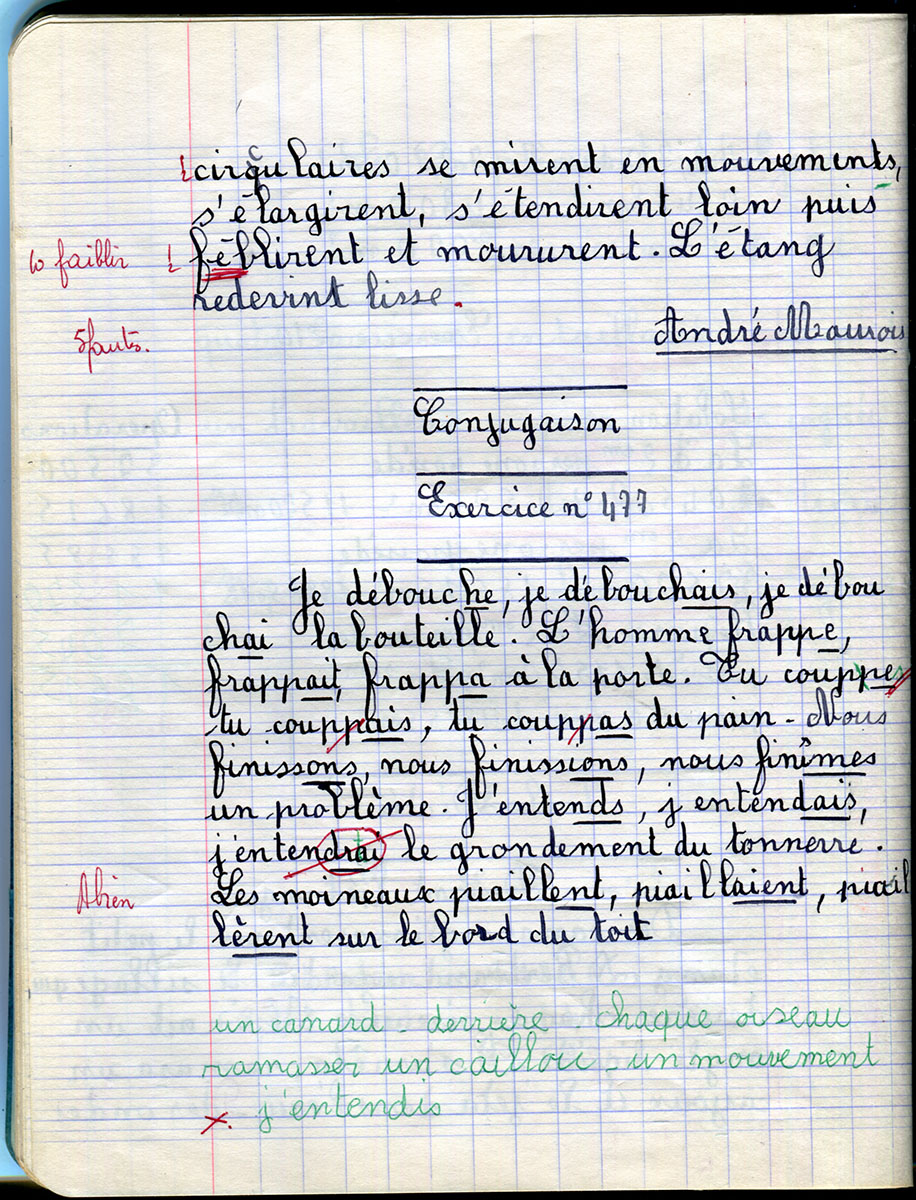 circulaires se mirent en mouvements,
s'élargirent, s'étendirent loin puis
to faiblir fêblirent et moururent. L'étang
redevint lisse.
5 fautes.
André Maurois
Conjugaison
Exercice n° 477
Je débouche, je débouchais, je débou
chai la bouteille. L'homme frappe,
frappait, frappa à la porte. Tu couppes
tu couppais, tu couppas du pain - Nous
finissons, nous finissions, nous finîmes
un problème. J'entends, j'entendais,
j'entendrai le grondement du tonnerre.
Les moineaux piaillent, piaillaient, piail
A bien
lèrent sur le bord du toit
un canard - derrière - chaque oiseau
ramasser un caillou - un mouvement
x. j'entendis